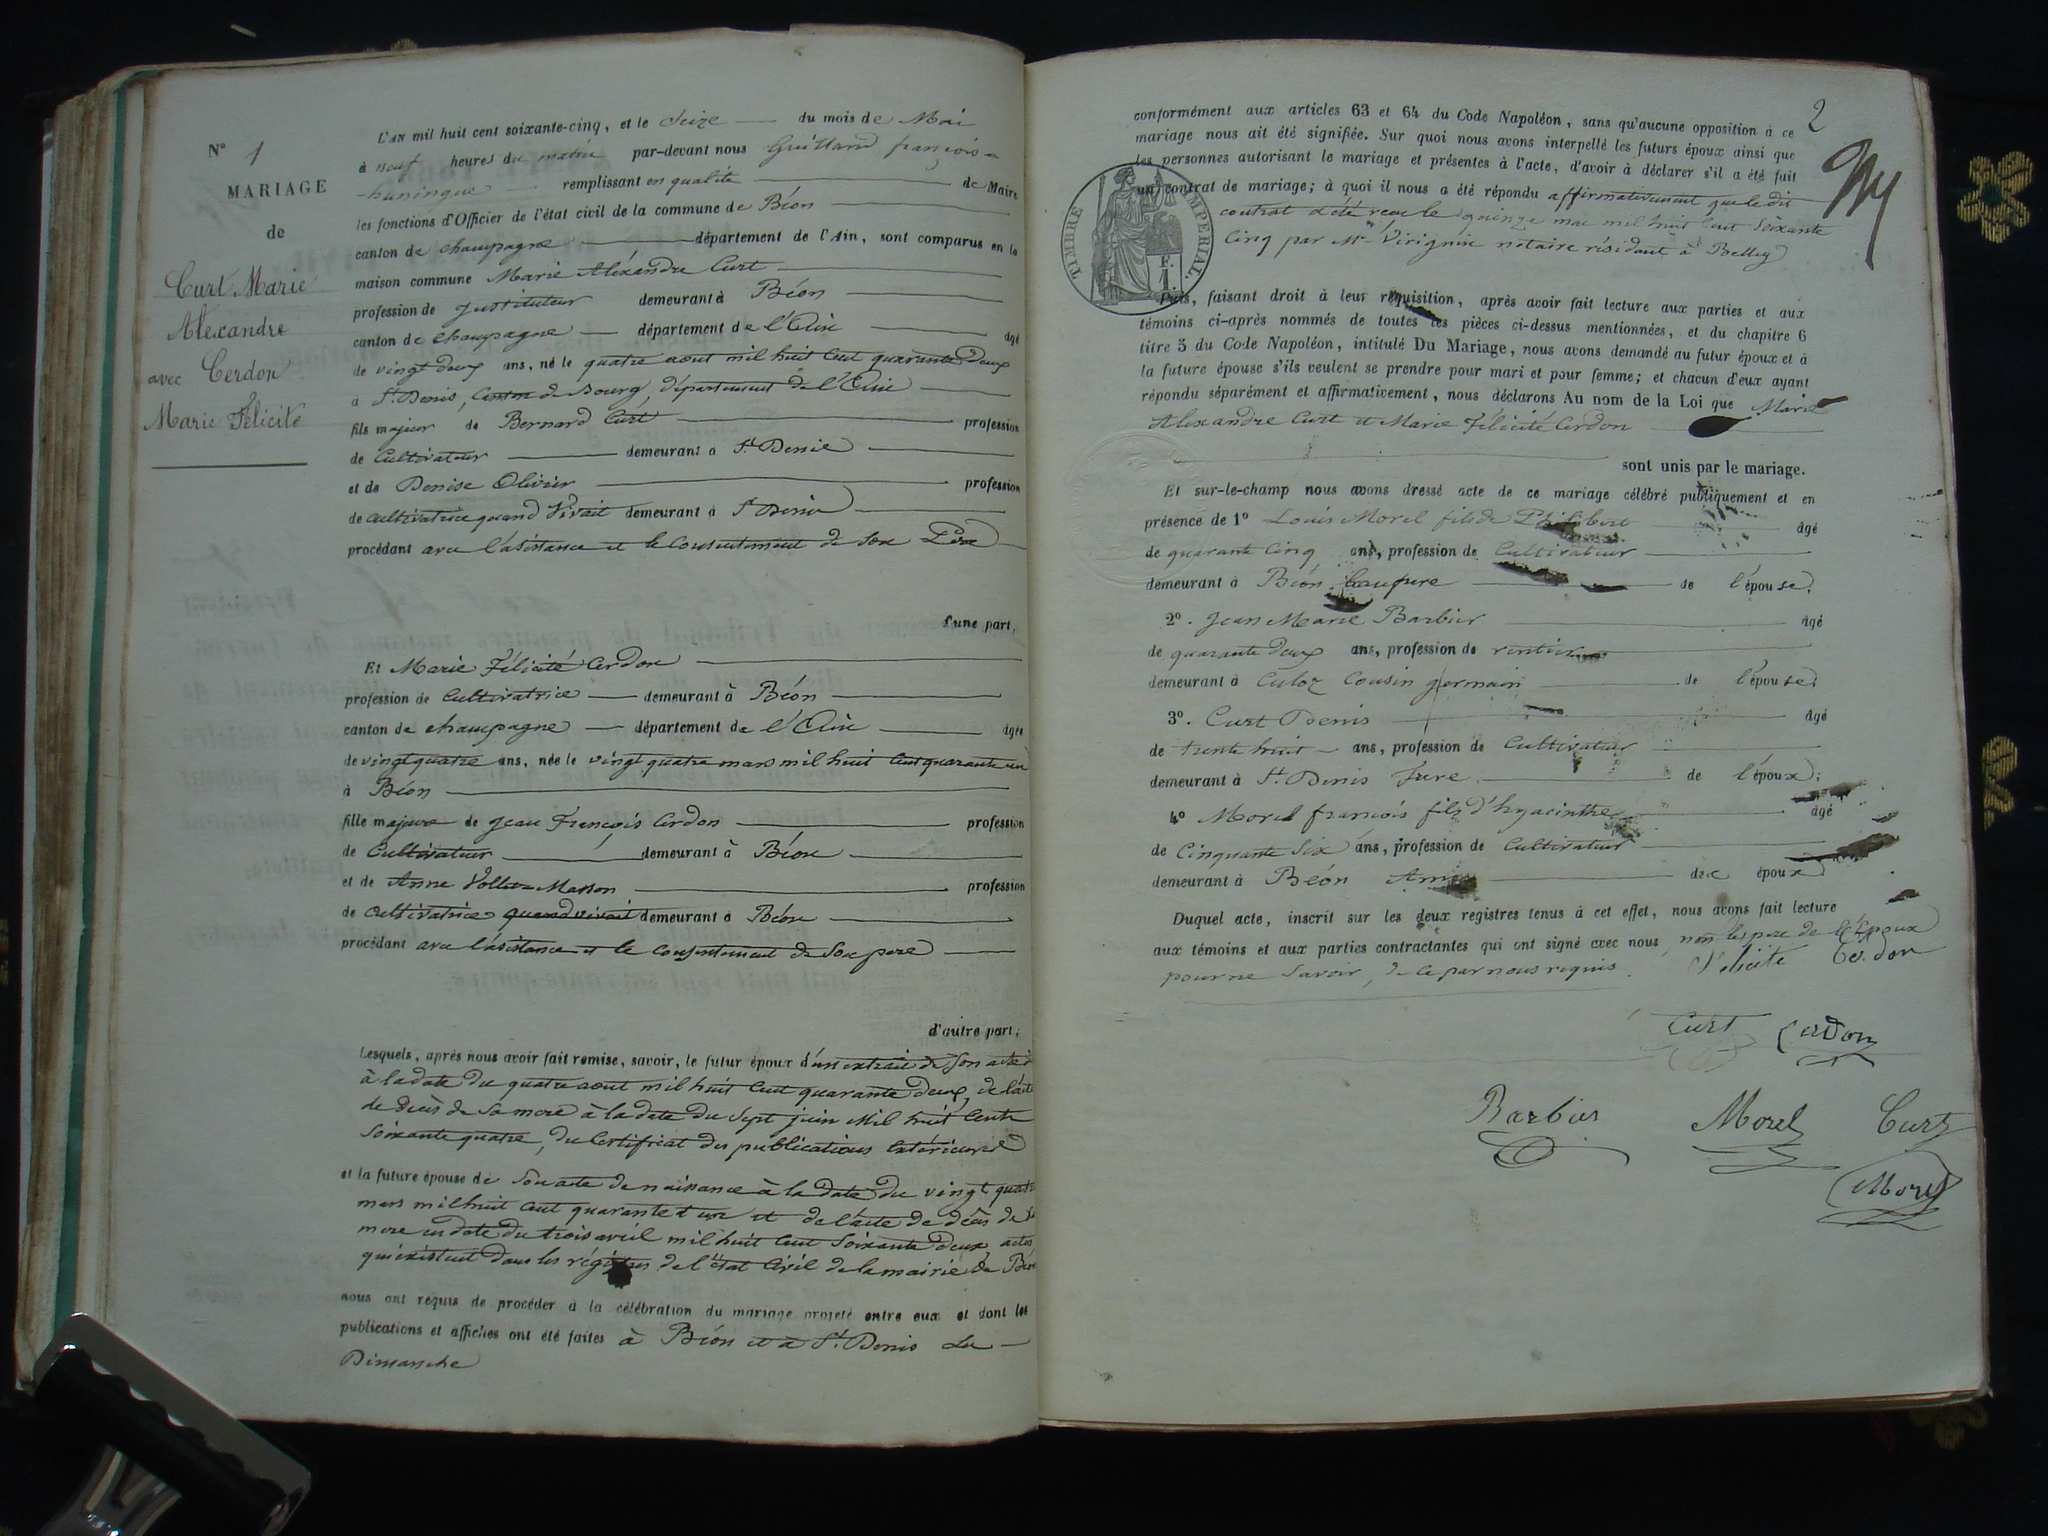 N° 1
MARIAGE
de
Curt Marie
Alexandre
avec Cerdon
Marie Félicité
L'AN mil huit cent soixante-cinq, et le Seize du mois de Mai
à neuf heures du matin par-devant nous Guillard françois
huningue remplissant en qualité de Maire
les fonctions d'Officier de l'état civil de la commune de Béon
canton de champagne département de l'Ain, sont comparus en la
maison commune Marie Aléxandre Curt
profession de instituteur demeurant à Béon
canton de champagne département de l'Ain âgé
de vingt deux ans, né le quatre aout mil huit cent quarante deux
à St. Denis, Canton de Bourg, département de l'Ain
fils majeur de Bernard Curt profession
de Cultivateur demeurant à St Denis
et de Denise Olivier profession
de cultivatrice quand vivait demeurant à St Denis
procédant avec l'asistance et le Consentement de son Père
d'une part,
Et Marie Félicité Cerdon
profession de Cultivatrice demeurant à Béon
canton de champagne département de l'Ain âgée
de vingt quatre ans, née le vingt quatre mars mil huit cent quarante un
à Béon
fille majeure de jean François Cerdon profession
de Cultivateur demeurant à Béon
et de Anne Masson profession
de Cultivatrice quand vivait demeurant à Béon
procédant avec l'asistance et le consentement de son pere
d'autre part;
Lesquels, après nous avoir fait remise, savoir, le futur époux d'un extrait de son acte
à la date du quatre aout mil huit cent quarante deux, de l'acte
de décès de sa mere à la date du Sept juin Mil huit Cent
soixante quatre, du Certificat des publications extérieures
et la future épouse de Son acte de naissance à la date du vingt quatre
mars mil huit cent quarante et un et de l'acte de décès de sa
mere en date du trois avril mil huit cent soixante deux, actes
qui existent dans les régistres de l'état Civil de la mairie de Béon
nous ont requis de procéder à la célébration du mariage projeté entre eux et dont les
publications et affiches ont été faites à Béon et à St. Denis Les
Dimanche
2
conformément aux articles 63 et 64 du Code Napoléon, sans qu'aucune opposition à ce
mariage nous ait été signifiée. Sur quoi nous avons interpellé les futurs époux ainsi que
les personnes autorisant le mariage et présentes à l'acte, d'avoir à déclarer s'il a été fait
un contrat de mariage; à quoi il nous a été répondu affirmativement que ledit
contrat a été reçu le quinze mai mil huit cent soixante
Cinq par Me Virignin notaire résidant à Belley
TIMBRE IMPÉRIAL.
1 F.
Puis, faisant droit à leur réquisition, après avoir fait lecture aux parties et aux
témoins ci-après nommés de toutes les pièces ci-dessus mentionnées, et du chapitre 6
titre 5 du Code Napoléon, intitulé Du Mariage, nous avons demandé au futur époux et à
la future épouse s'ils veulent se prendre pour mari et pour femme; et chacun d'eux ayant
répondu séparément et affirmativement, nous déclarons Au nom de la Loi que Marie
Alexandre Curt et Marie Félicité Cerdon
sont unis par le mariage.
Et sur-le-champ nous avons dressé acte de ce mariage célébré publiquement et en
présence de 1° Louis Morel fils de Philibert âgé
de quarante cinq ans, profession de Cultivateur
demeurant à Béon de l'épouse;
2°. Jean Marie Barbier âgé
de quarante deux ans, profession de rentier
demeurant à Culoz Cousin germain de l'épouse;
3°. Curt Denis âgé
de trente huit ans, profession de Cultivateur
demeurant à St. Denis frere de l'époux;
4° Morel françois fils d'hyacinthe âgé
de Cinquante Six ans, profession de Cultivateur
demeurant à Béon Ami des époux
Duquel acte, inscrit sur les deux registres tenus à cet effet, nous avons fait lecture
aux témoins et aux parties contractantes qui ont signé avec nous non le pere de l'époux
pour ne savoir, de ce par nous requis. Felicité Cerdon
Curt Cerdon
Barbier Morel Curt
Morel